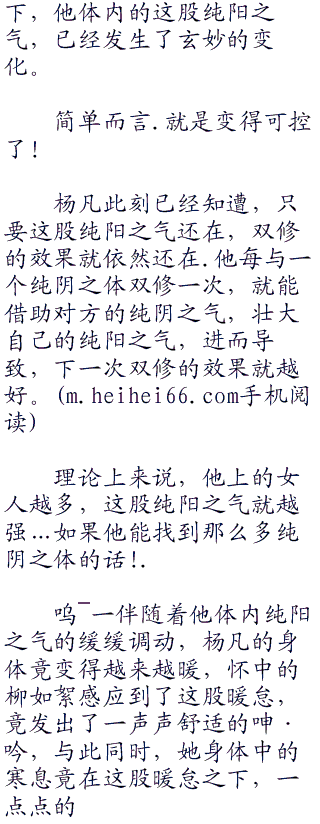 下，他体内的这股纯阳之
气，已经发生了玄妙的变
化。
简单而言.就是变得可控
了！
杨凡此刻已经知遭，只
要这股纯阳之气还在，双修
的效果就依然还在.他每与一
个纯阴之体双修一次，就能
借助对方的纯阴之气，壮大
自己的纯阳之气，进而导
致，下一次双修的效果就越
好。(m.heihei66.com手机阅
读)
理论上来说，他上的女
人越多，这股纯阳之气就越
强…如果他能找到那么多纯
阴之体的话!.
呜¯一伴随着他体内纯阳
之气的缓缓调动，杨凡的身
体竟变得越来越暖，怀中的
柳如絮感应到了这股暖怠，
竟发出了一声声舒适的呻·
吟，与此同时，她身体中的
寒息竟在这股暖怠之下，一
点点的